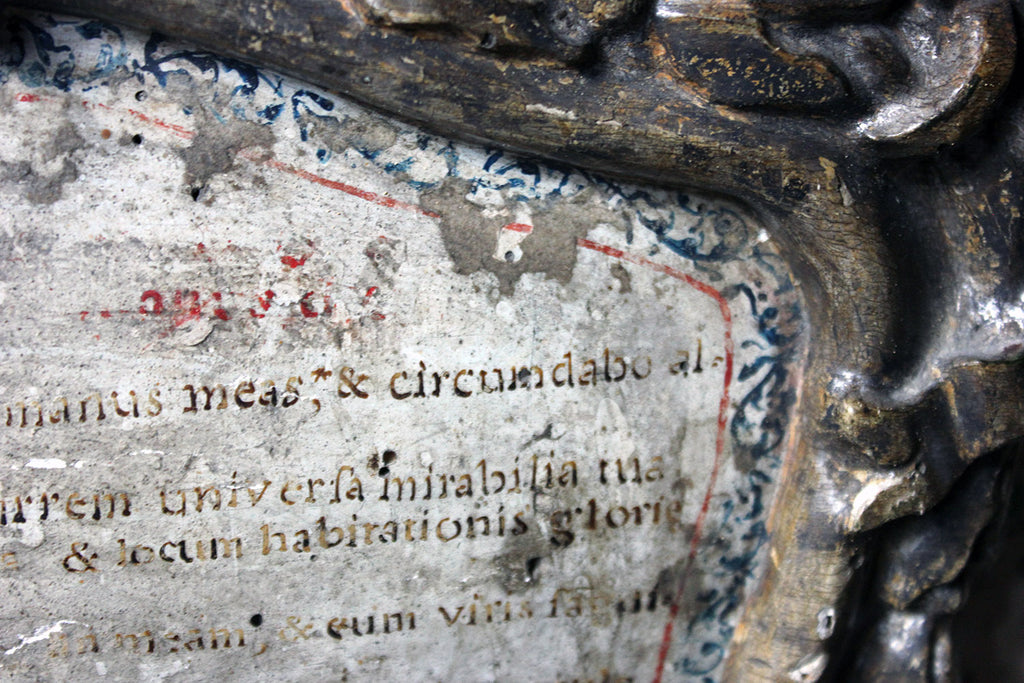 manus meas, * & circumdabo al-
rrem universa mirabilia tua
& locum habitationis glorie
meam, & cum viris